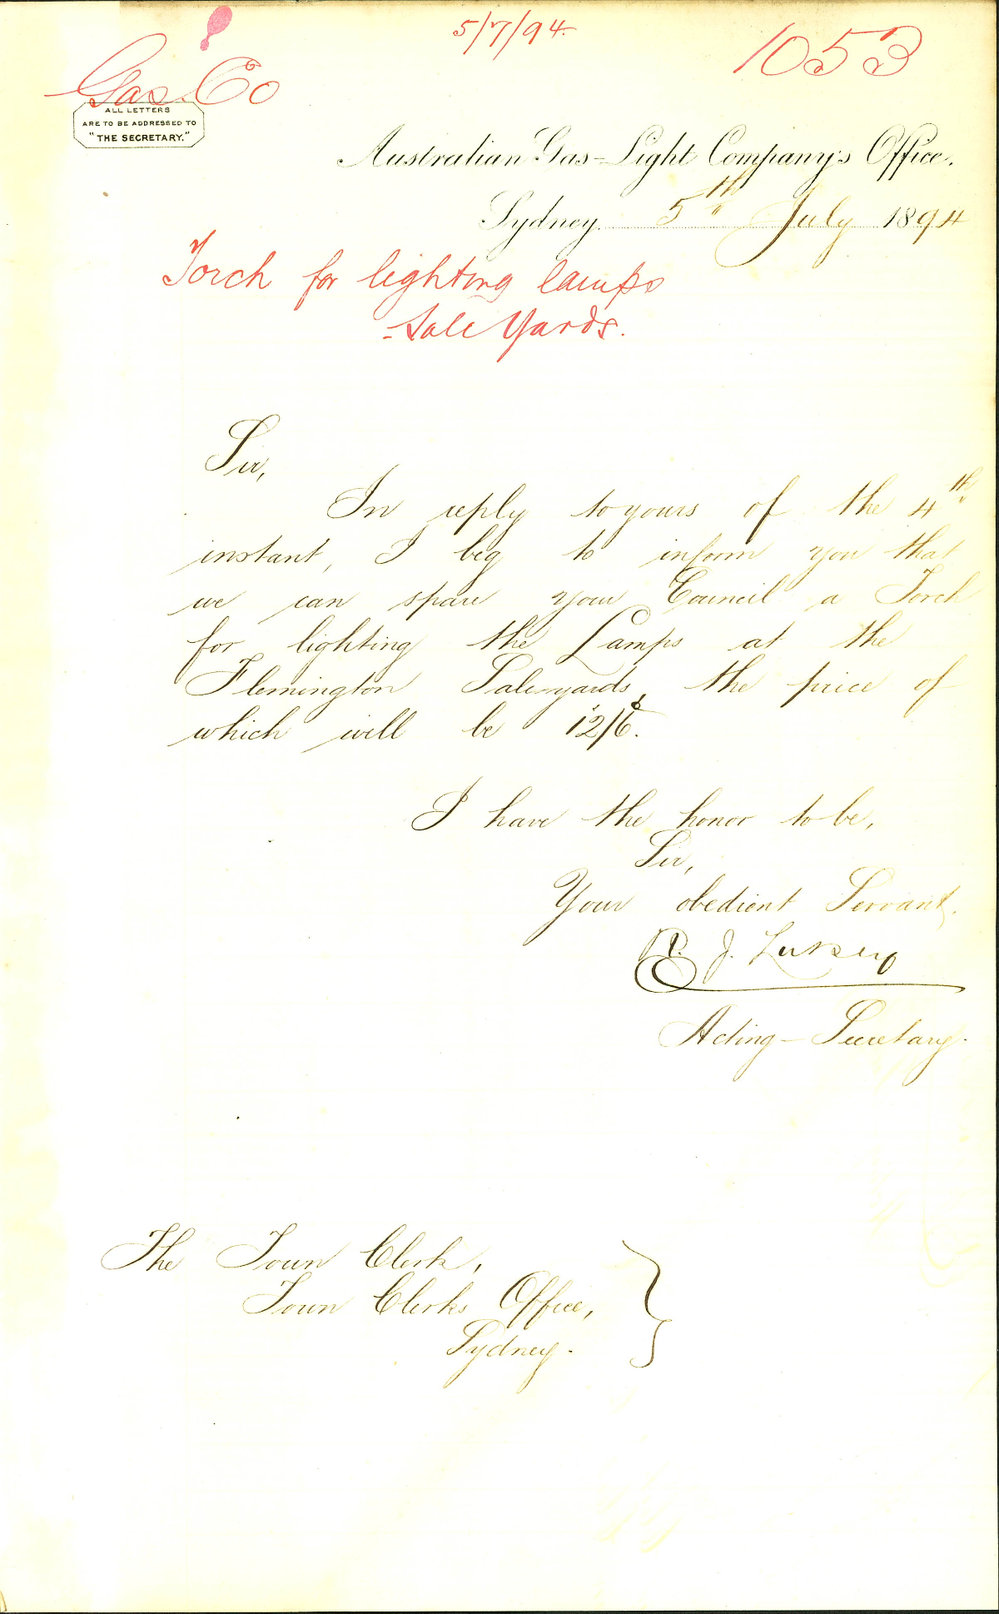 5/7/94.
1053
Gas Co
ALL LETTERS
ARE TO BE ADDRESSED TO
"THE SECRETARY."
Australian Gas-Light Company's Office.
Sydney 5th July 1894
Torch for lighting lamps
- Sale Yards.
Sir,
In reply to yours of the 4th
instant, I beg to inform you that
we can spare your Council a Torch
for lighting the Lamps at the
Flemington Sale-yards, the price of
which will be 12/6.
I have the honor to be,
Sir,
Your obedient Servant,
J.
Acting-Secretary.
The Town Clerk,
Town Clerks Office,
Sydney.